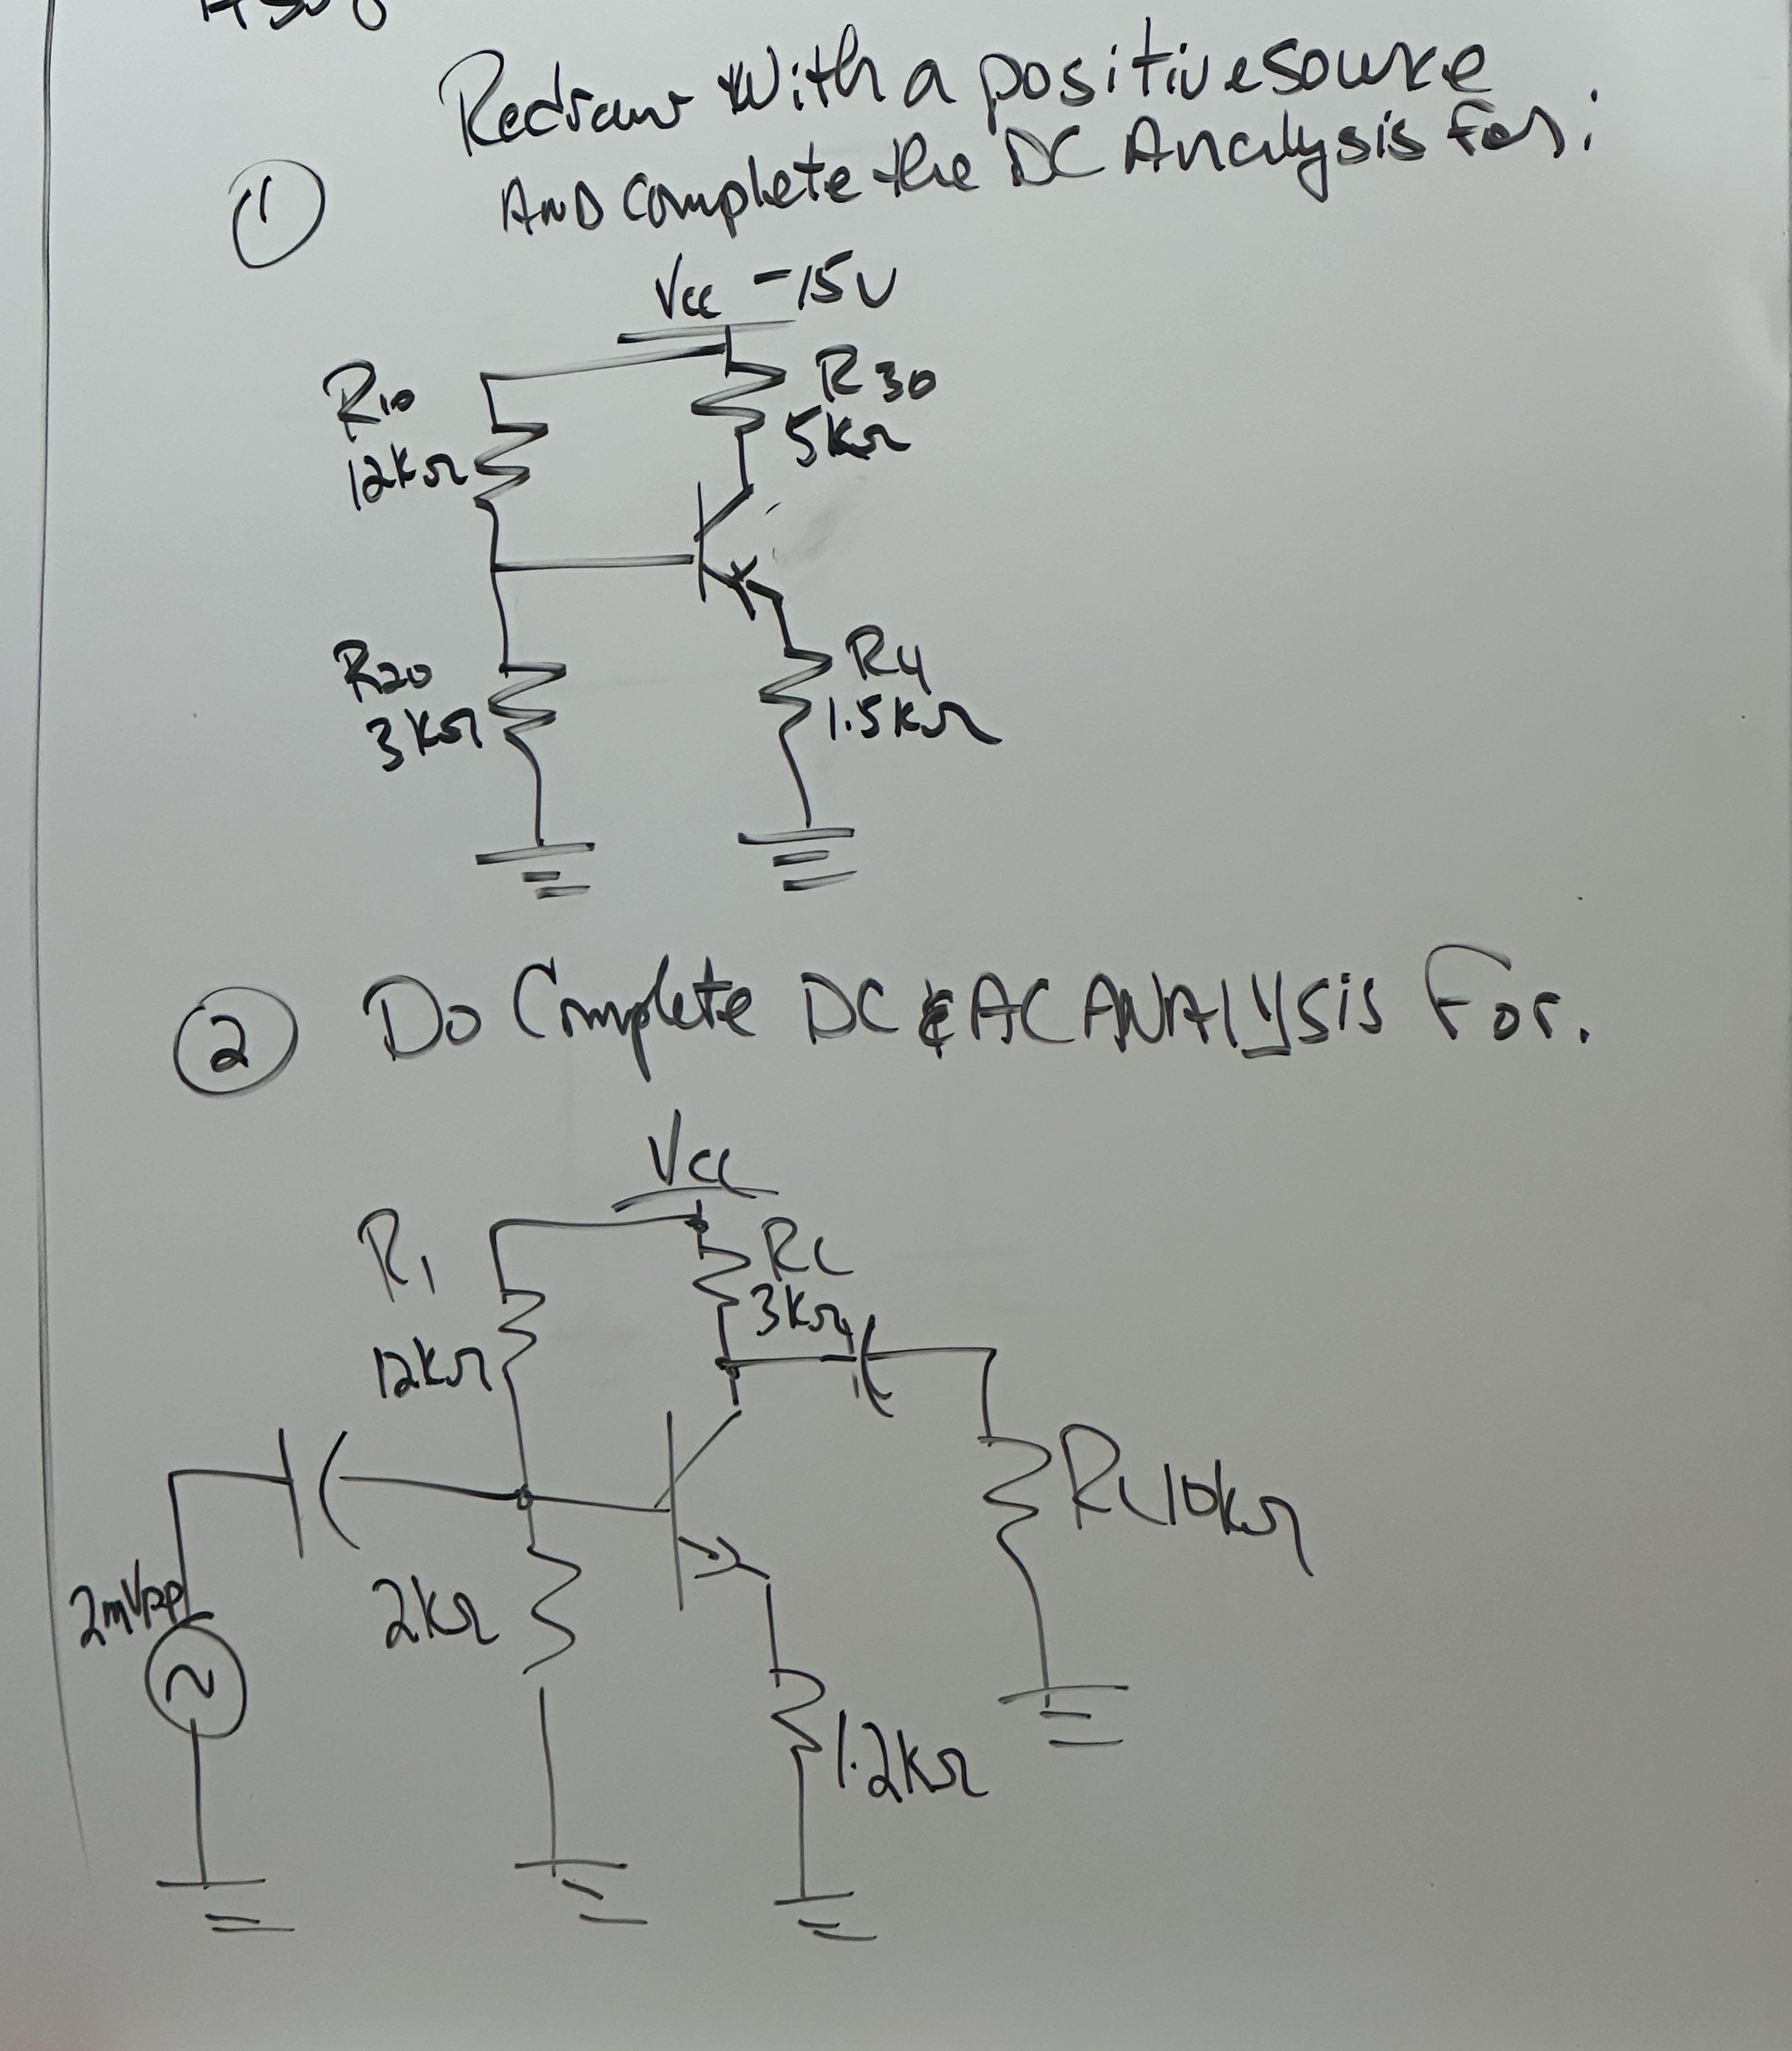 Redraw with a positive source
AND complete the DC Analysis for:
1
Vcc -15V
R10
12KΩ
R30
5KΩ
R20
3KΩ
R4
1.5KΩ
2 Do Complete DC & AC ANALYSIS For.
Vcc
R1
12KΩ
RC
3KΩ
RL 10KΩ
2mVpp
2KΩ
~
1.2KΩ